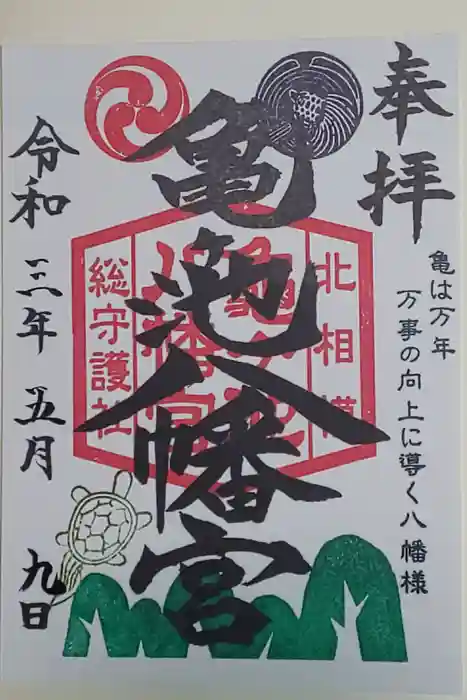 奉拝
亀は万年
万事の向上に導く八幡様
亀池八幡宮
北相模
総守護社
令和三年五月九日